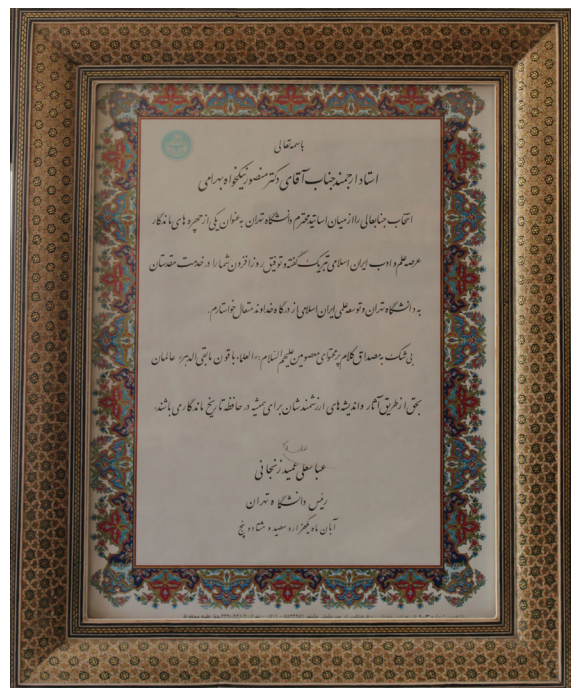 باسمه تعالی
استاد ارجمند جناب آقای دکتر منصور نیکخواه بهرامی
انتخاب جنابعالی را از میان اساتید محترم دانشگاه تهران به عنوان یکی از چهره های ماندگار
عرصه علم و ادب ایران اسلامی تبریک گفته و توفیق روز افزون شما را در خدمت مقدستان
به دانشگاه تهران و توسعه علمی ایران اسلامی از درگاه خداوند متعال خواستارم.
بی شک به مصداق کلام پر محتوای معصومین علیهم السلام «العلماء باقون مابقی الدهر» عالمان
بحق از طریق آثار و اندیشه های ارزشمندشان برای همیشه در حافظه تاریخ ماندگار می باشند.
عباسعلی عمید زنجانی
رئیس دانشگاه تهران
آبان ماه یکهزار و سیصد و هشتاد و پنج